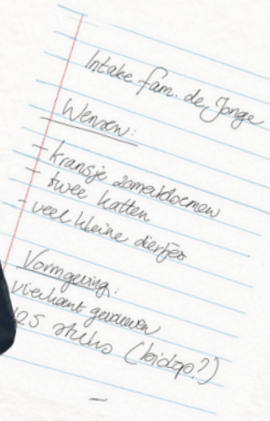 Intake fam. de Jonge
Wensen:
- kransje zomerbloemen
- twee katten
- veel kleine diertjes
Vormgeving:
vierkant gevouwen
125 stuks (bidop?)